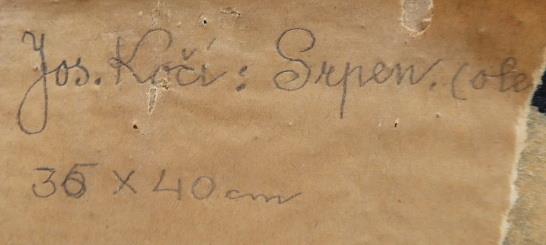 Jos. Kočí: Srpen. (ole
35 x 40 cm